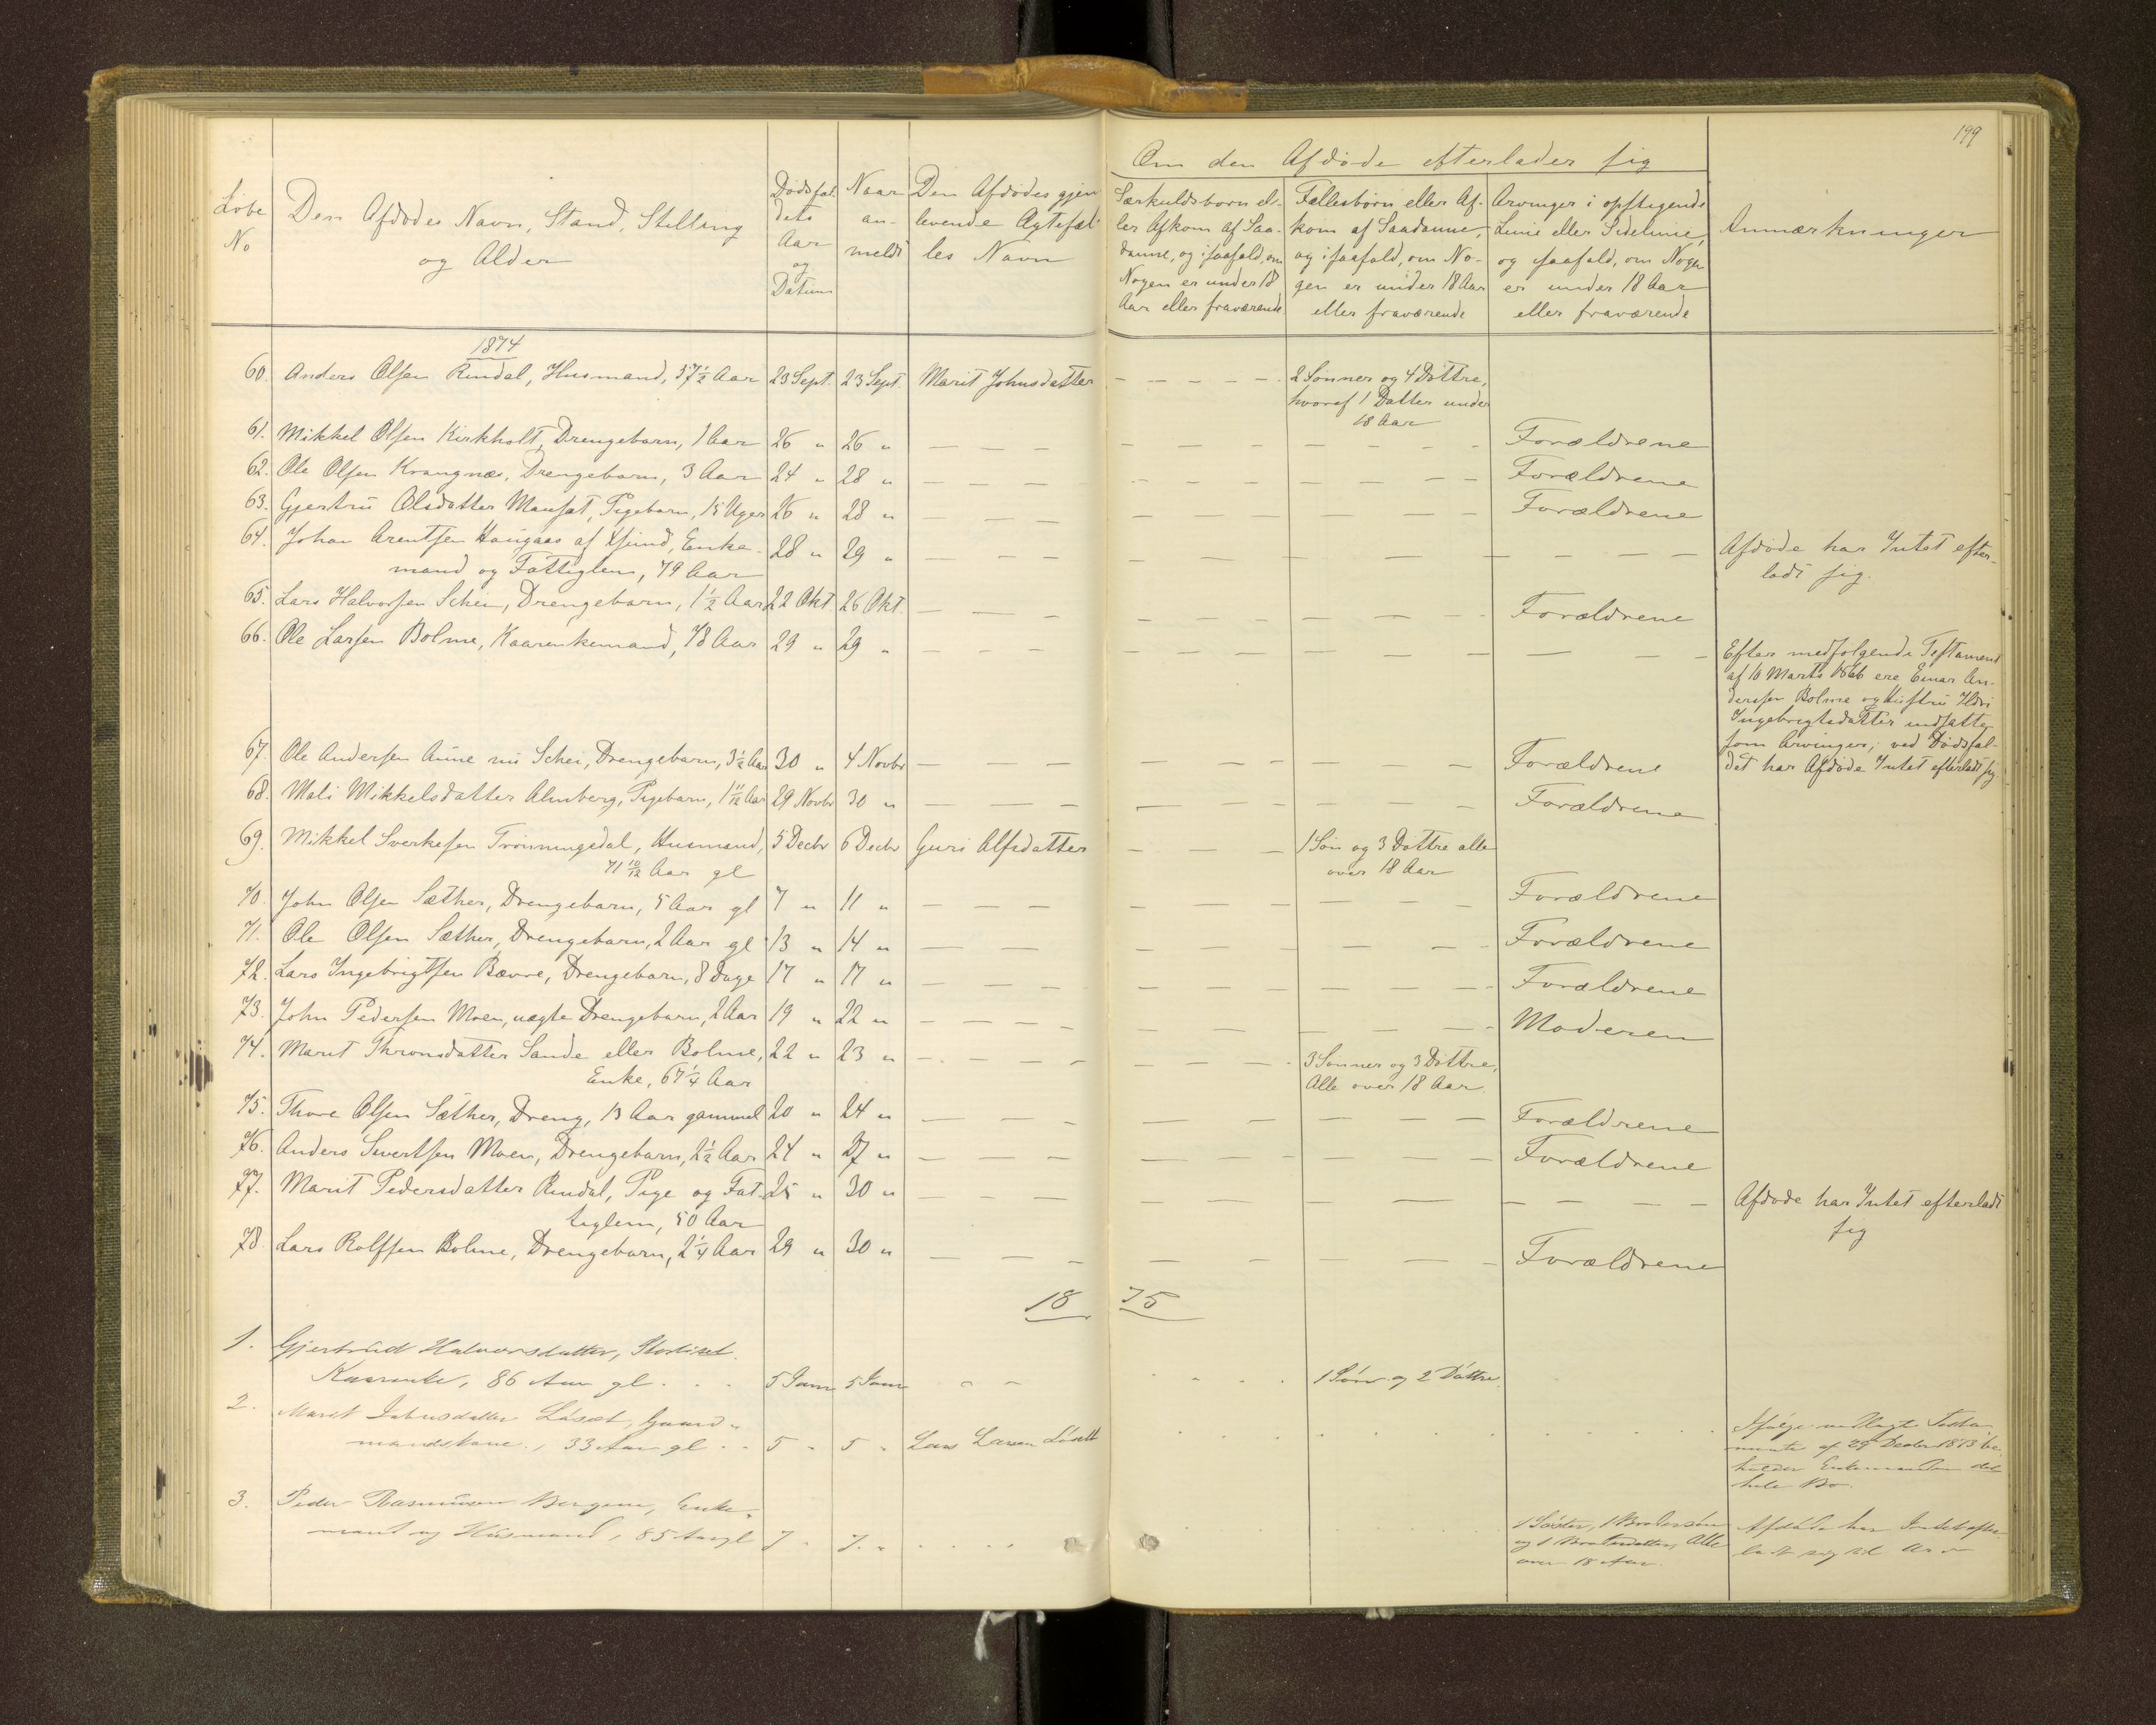 199
Om den Afdøde efterlader sig
Løbe No
Den Afdødes Navn, Stand, Stilling og Alder
Dødsfaldets Aar og Datum
Naar anmeldt
Den Afdødes gjenlevende Ægtefælles Navn
Særkuldsbørn eller Afkom af Saadanne, og isaafald, om Nogen er under 18 Aar eller fraværende
Fællesbørn eller Afkom af Saadanne, og isaafald, om Nogen er under 18 Aar eller fraværende
Arvinger i opstigende Linie eller Sidelinie, og isaafald, om Nogen er under 18 Aar eller fraværende
Anmærkninger
1874
60. Anders Olsen Rindal, Husmand, 57 1/2 Aar 23 Sept. 23 Sept. Marit Johnsdatter — — — — 2 Sønner og 4 Døttre,
hvoraf 1 Datter under
18 Aar
61. Mikkel Olsen Kirkholt, Drengebarn, 1 Aar 26 " 26 " — — — Forældrene
62. Ole Olsen Krangnæs, Drengebarn, 3 Aar 24 " 28 " — — — Forældrene
63. Gjertru Olsdatter , Pigebarn, 15 Uger 26 " 28 " — — — Forældrene
64. Johan Arentsen Haugaas af , Enke- 28 " 29 " — — — Afdøde har Intet efter-
mand og Fattiglem, 79 Aar ladt sig.
65. Lars Halvorsen Schei, Drengebarn, 1 1/2 Aar 22 Okt. 26 Okt. — — — Forældrene
66. Ole Larsen Bolme, Kaarenkemand, 78 Aar 29 " 29 " — — — Efter medfølgende Testament
af 10 Marts 1866 ere Einar An-
dersen Bolme og Hustru Ildri
Ingebrigtsdatter indsatte
som Arvinger; ved Dødsfal-
det har Afdøde Intet efterladt sig
67. Ole Andersen Aune nu Schei, Drengebarn, 3 1/2 Aar 30 " 4 Novbr — — — Forældrene
68. Mali Mikkelsdatter Almberg, Pigebarn, 1 11/12 Aar 29 Novbr 30 " — — — Forældrene
69. Mikkel Sverkesen Trønningsdal, Husmand, 5 Decbr 6 Decbr Guri Alfsdatter — — — 1 Søn og 3 Døttre alle
71 10/12 Aar gl over 18 Aar
70. John Olsen Sæther, Drengebarn, 5 Aar gl 7 " 11 " — — — Forældrene
71. Ole Olsen Sæther, Drengebarn, 2 Aar gl 13 " 14 " — — — Forældrene
72. Lars Ingebrigtsen Bævre, Drengebarn, 8 Dage 17 " 17 " — — — Forældrene
73. John Pedersen Moen, uægte Drengebarn, 2 Aar 19 " 22 " — — — Moderen
74. Marit Thronsdatter Sande eller Bolme, 22 " 23 " — — — 3 Sønner og 3 Døttre,
Enke, 67 1/4 Aar Alle over 18 Aar.
75. Thore Olsen Sæther, Dreng, 13 Aar gammel 20 " 24 " — — — Forældrene
76. Anders Sivertsen Moen, Drengebarn, 2 1/2 Aar 24 " 27 " — — — Forældrene
77. Marit Pedersdatter Rindal, Pige og Fat- 25 " 30 " — — — Afdøde har Intet efterladt
tiglem, 50 Aar sig
78. Lars Rolfsen Bolme, Drengebarn, 2 1/4 Aar 29 " 30 " — — — Forældrene
18 75
1. Gjertrud Halvorsdatter,
Kaarenke, 86 Aar gl. 5 Janr 5 Janr " " 1 Søn og 2 Døttre.
2. Marit Johnsdatter Løset, Gaard-
mandskone, 33 Aar gl. 5 " 5 " Lars Larsen Løset Ifølge vedlagte Testa-
mente af 29 Decbr 1873 be-
holder Enkemanden det
hele Bo.
3. Peder Rasmussen , Enke-
mand og Husmand, 85 Aar gl 7 " 7 " 1 Søster, 1 Brodersøn
og 1 Broderdatter, Alle
over 18 Aar. Afdøde har Intet efter-
ladt sig til Arv